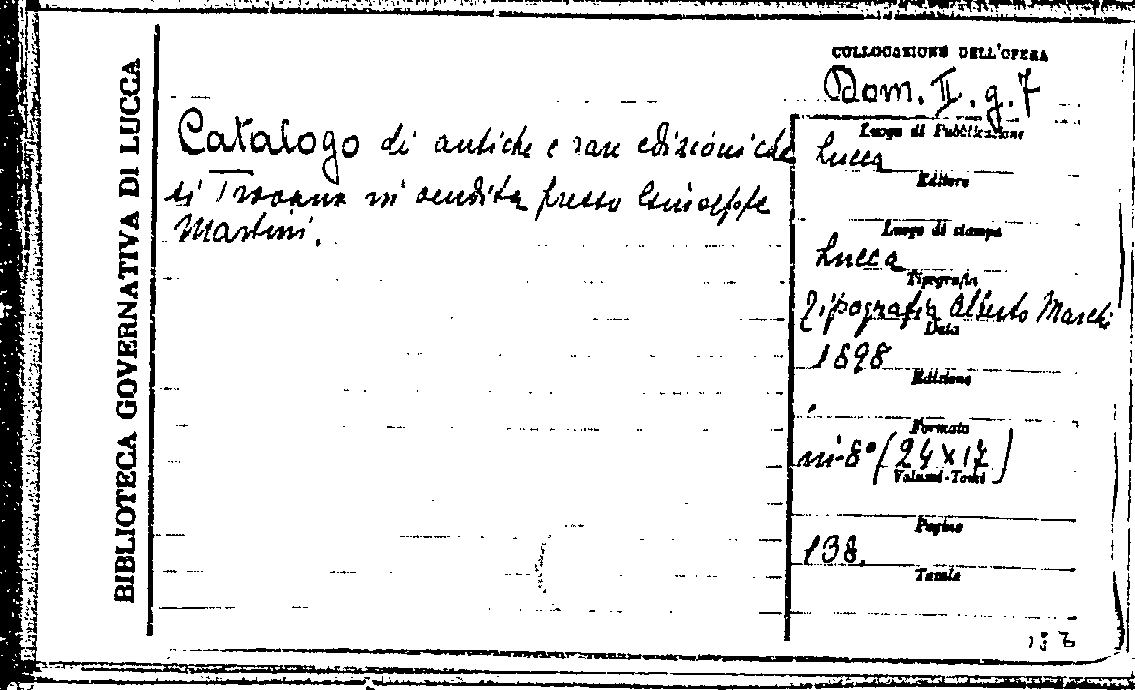 BIBLIOTECA GOVERNATIVA DI LUCCA
COLLOCAZIONE DELL'OPERA
Dom. II. g. 7
Catalogo di antiche e rare edizioni che
si Trovano in vendita presso Giuseppe
Martini.
Luogo di Pubblicazione
Lucca
Editore
Luogo di stampa
Lucca
Tipografia
Tipografia Alberto Marchi
Data
1898
Edizione
Formato
in-8° (24 x 17)
Volumi-Tomi
Pagine
138.
Tavole